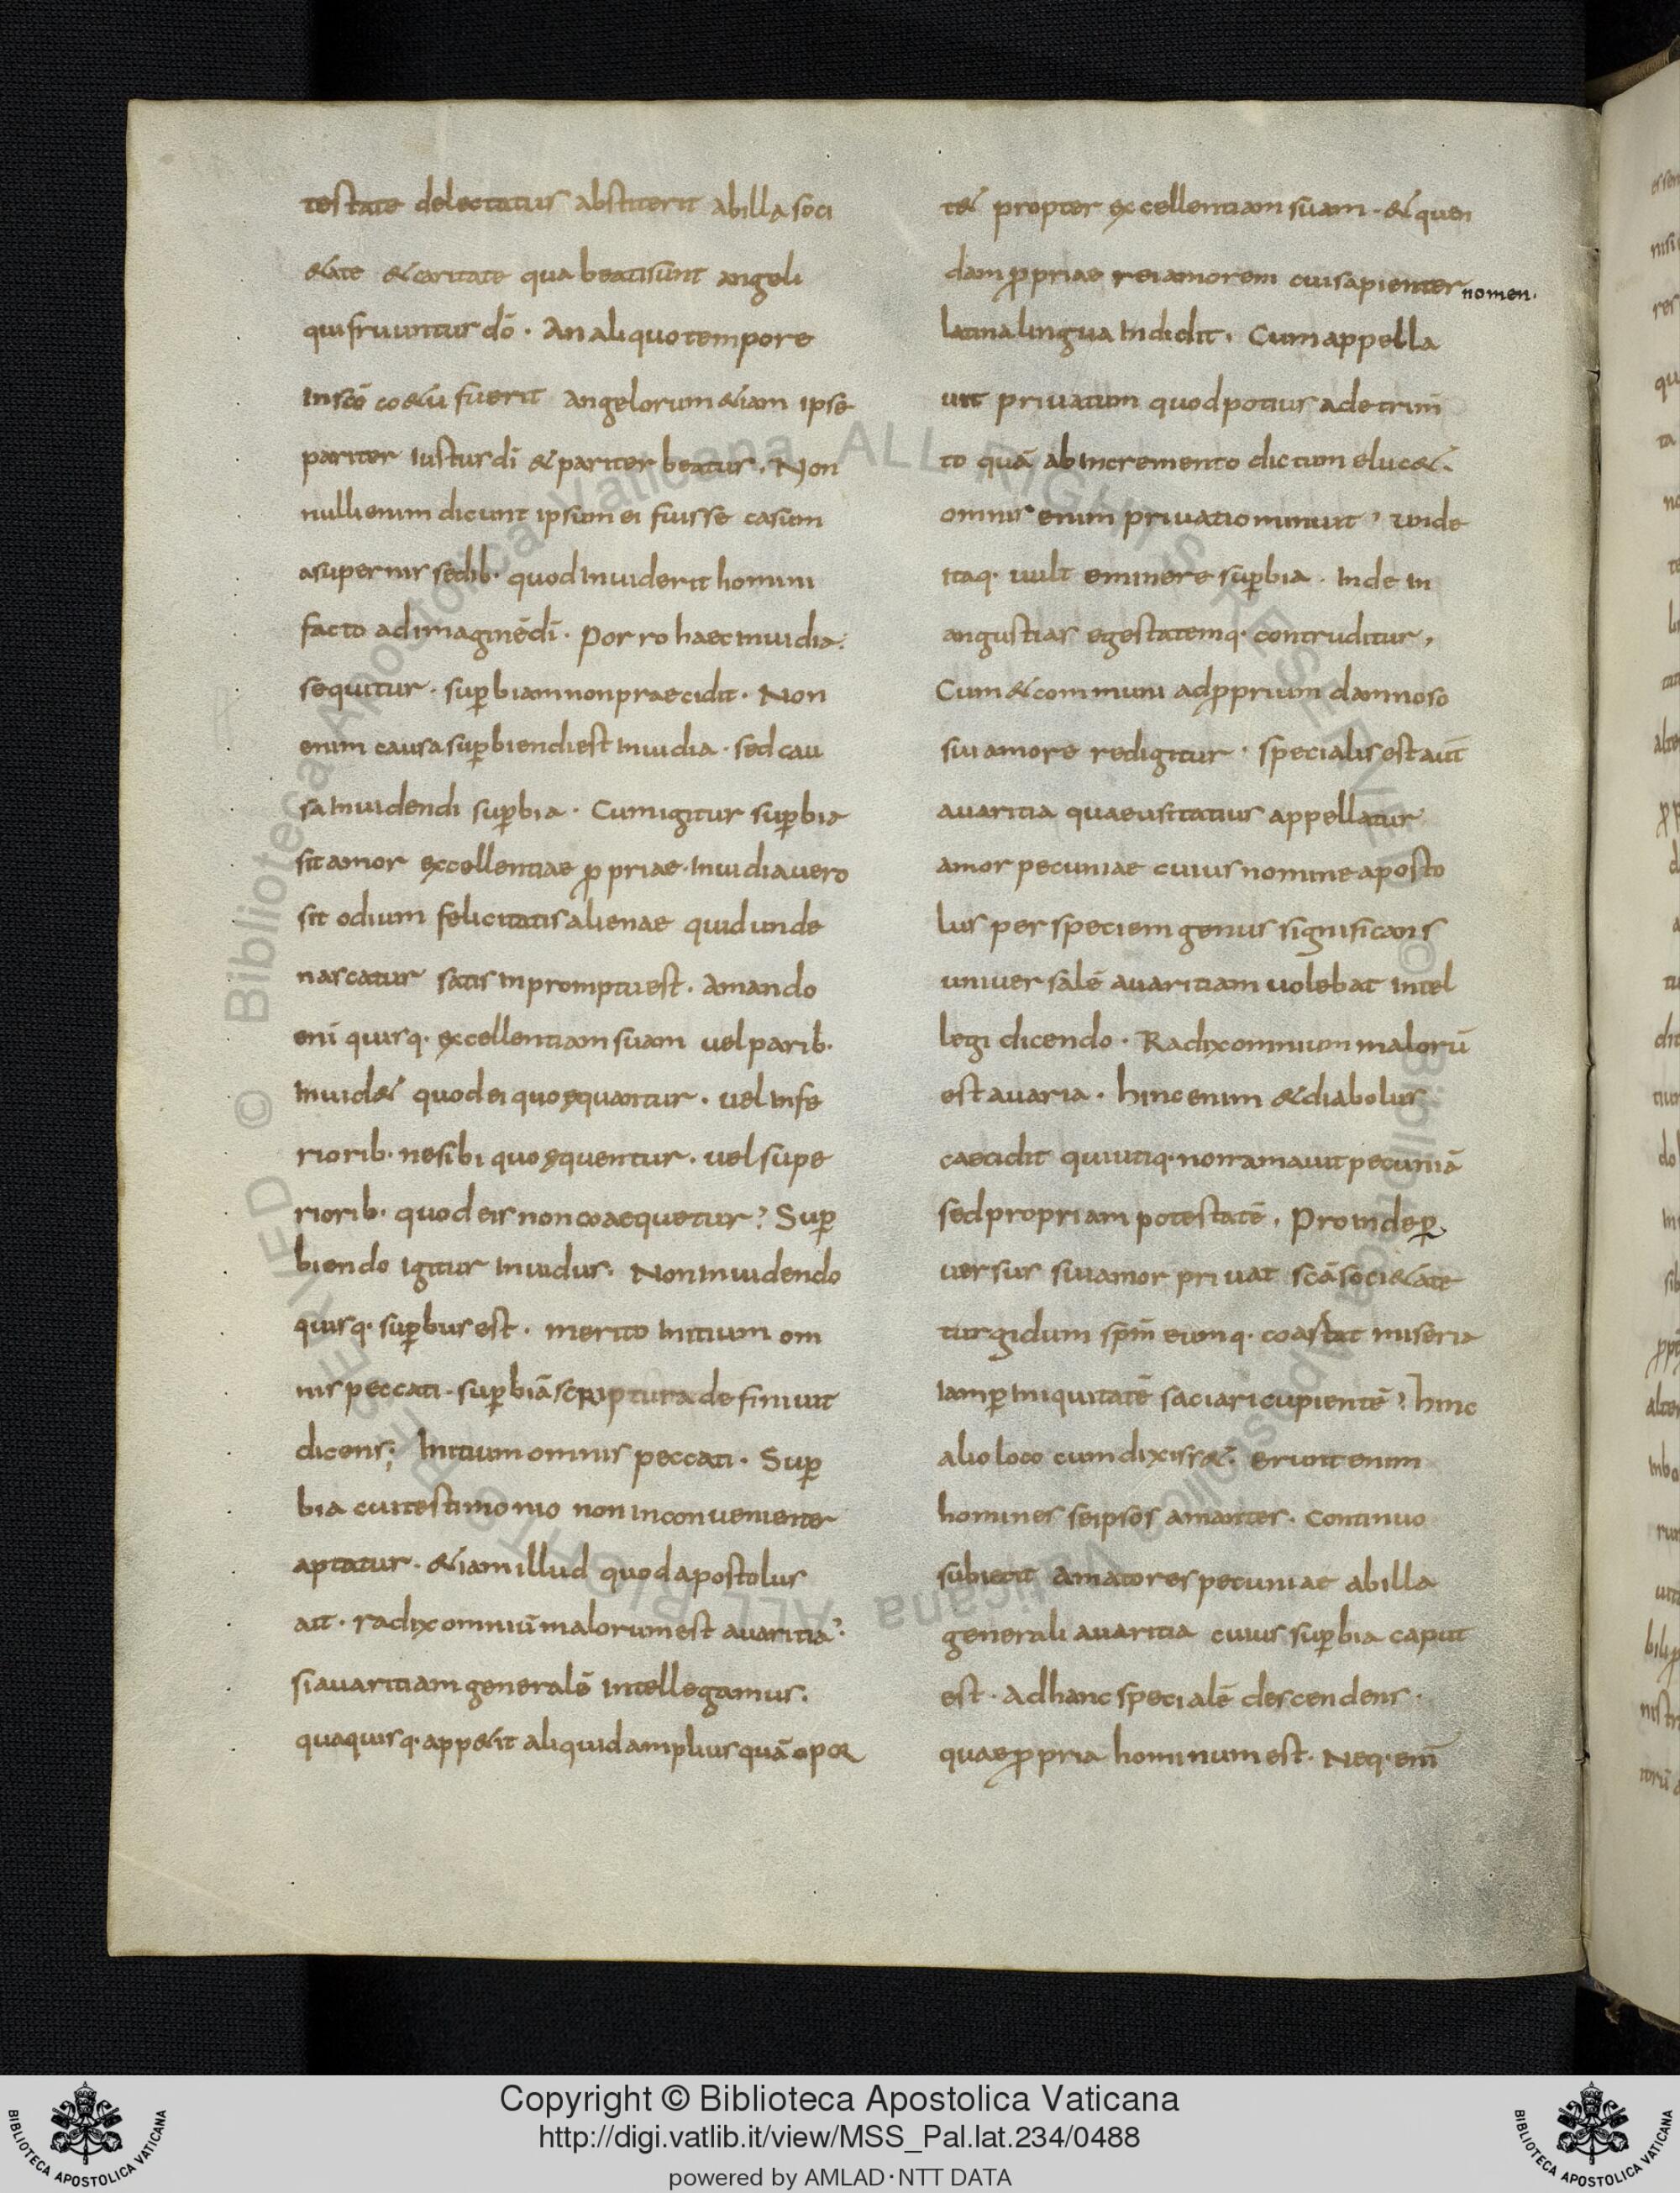 testate delectatus abstiterit abilla soci
&ate & caritate qua beatisunt angeli
quifruuntur dō · An aliquo tempore
Inscō co&u fuerit angelorum &iam ipse
pariter Iustus dī & pariter beatus. Non
nulli enim dicunt ipsum ei fuisse casum
asupernis sedib· quod Inuiderit homini
facto ad imaginē dī · Porro haec Inuidia
sequitur · suꝑbiam non praecidit · Non
enim causa suꝑbiendi est Inuidia · sed cau
sa Inuidendi suꝑbia · Cum igitur suꝑbia
sit amor excellentiae ꝓpriae · Inuidia uero
sit odium felicitatis alienae quid unde
nascatur satis Inpromptu est · Amando
eni quisq· excellentiam suam uel parib·
Inuid& quod ei quoęquantur · uel Infe
riorib· nesibi quoęquentur · uel supe
riorib· quod eis non coaequetur? Suꝑ
biendo Igitur Inuidus · Non Inuidendo
quisq· suꝑbus est · merito Initium om
nis peccati · suꝑbiā scriptura definiuit
dicens; Initium omnis peccati · Suꝑ
bia cui testimonio non inconuenienter
aptatur · &iam illud quod apostolus
ait · radix omniū malorum est auaritia?
si auaritiam generalē Intellegamus ·
qua quisq· app&it aliquid amplius quā opor
t& propter excellentiam suam · & quen
dam ꝓpriae rei amorem cui sapienter nomen·
latina lingua Indidit · Cum appella
uit priuatum quod potius adetrim
to quā ab Incremento dictum eluc& ·
omnis enim priuatio minuit? unde
itaq· uult eminere suꝑbia · Inde In
angustias egestatemq· contruditur,
Cum & communi ad ꝓprium damnoso
sui amore redigitur · specialis est aut̄
auaritia quae usitatius appellatur
amor pecuniae cuius nomine aposto
lus per speciem genus significans
uniuersalē auaritiam uolebat Intel
legi dicendo · Radix omnium malorū
est auaria · hinc enim & diabolus
caecidit qui utiq· non amauit pecuniā
sed propriam potestatē, Proinde ꝑ
uersus sui amor priuat scā soci&ate
turgidum spm̄ eumq· coastat miseria
Iam ꝑ Iniquitatē saciari cupientē? hinc
alio loco cum dixiss& · erunt enim
homines seipsos amantes · Continuo
subiecit amatores pecuniae abilla
generali auaritia cuius suꝑbia caput
est · Ad hanc specialē descendens ·
quae ꝓpria hominum est · Neq· enī
Copyright © Biblioteca Apostolica Vaticana
http://digi.vatlib.it/view/MSS_Pal.lat.234/0488
powered by AMLAD·NTT DATA